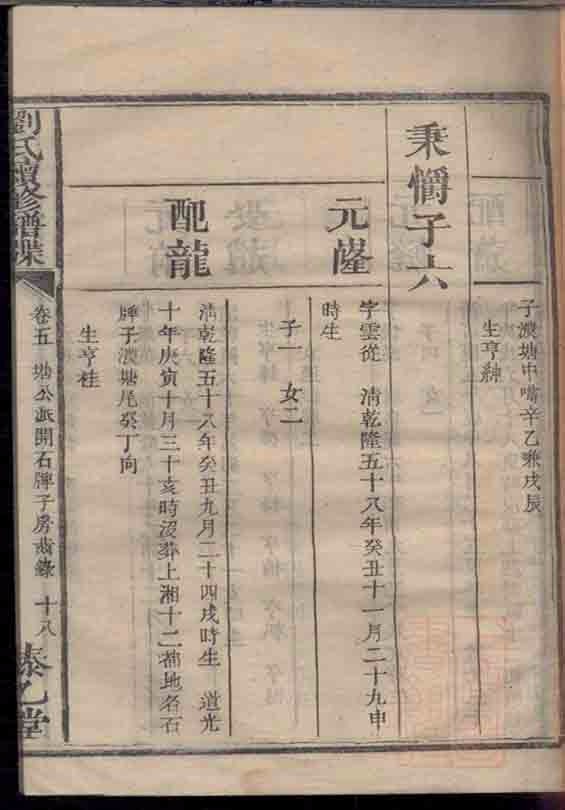 子濃塘中嘴辛乙兼戌辰
生亨紳
秉懏子六
元隆
字雲從 清乾隆五十八年癸丑十一月二十九申
時生
子一 女二
配龍
清乾隆五十八年癸丑九月二十四戌時生 道光
十年庚寅十月三十亥時沒葬上湘十二都地名石
牌子濃塘尾癸丁向
生亨桂
劉氏續修譜牒
卷五 塘公派開石牌子房齒錄 十八
泰乙堂